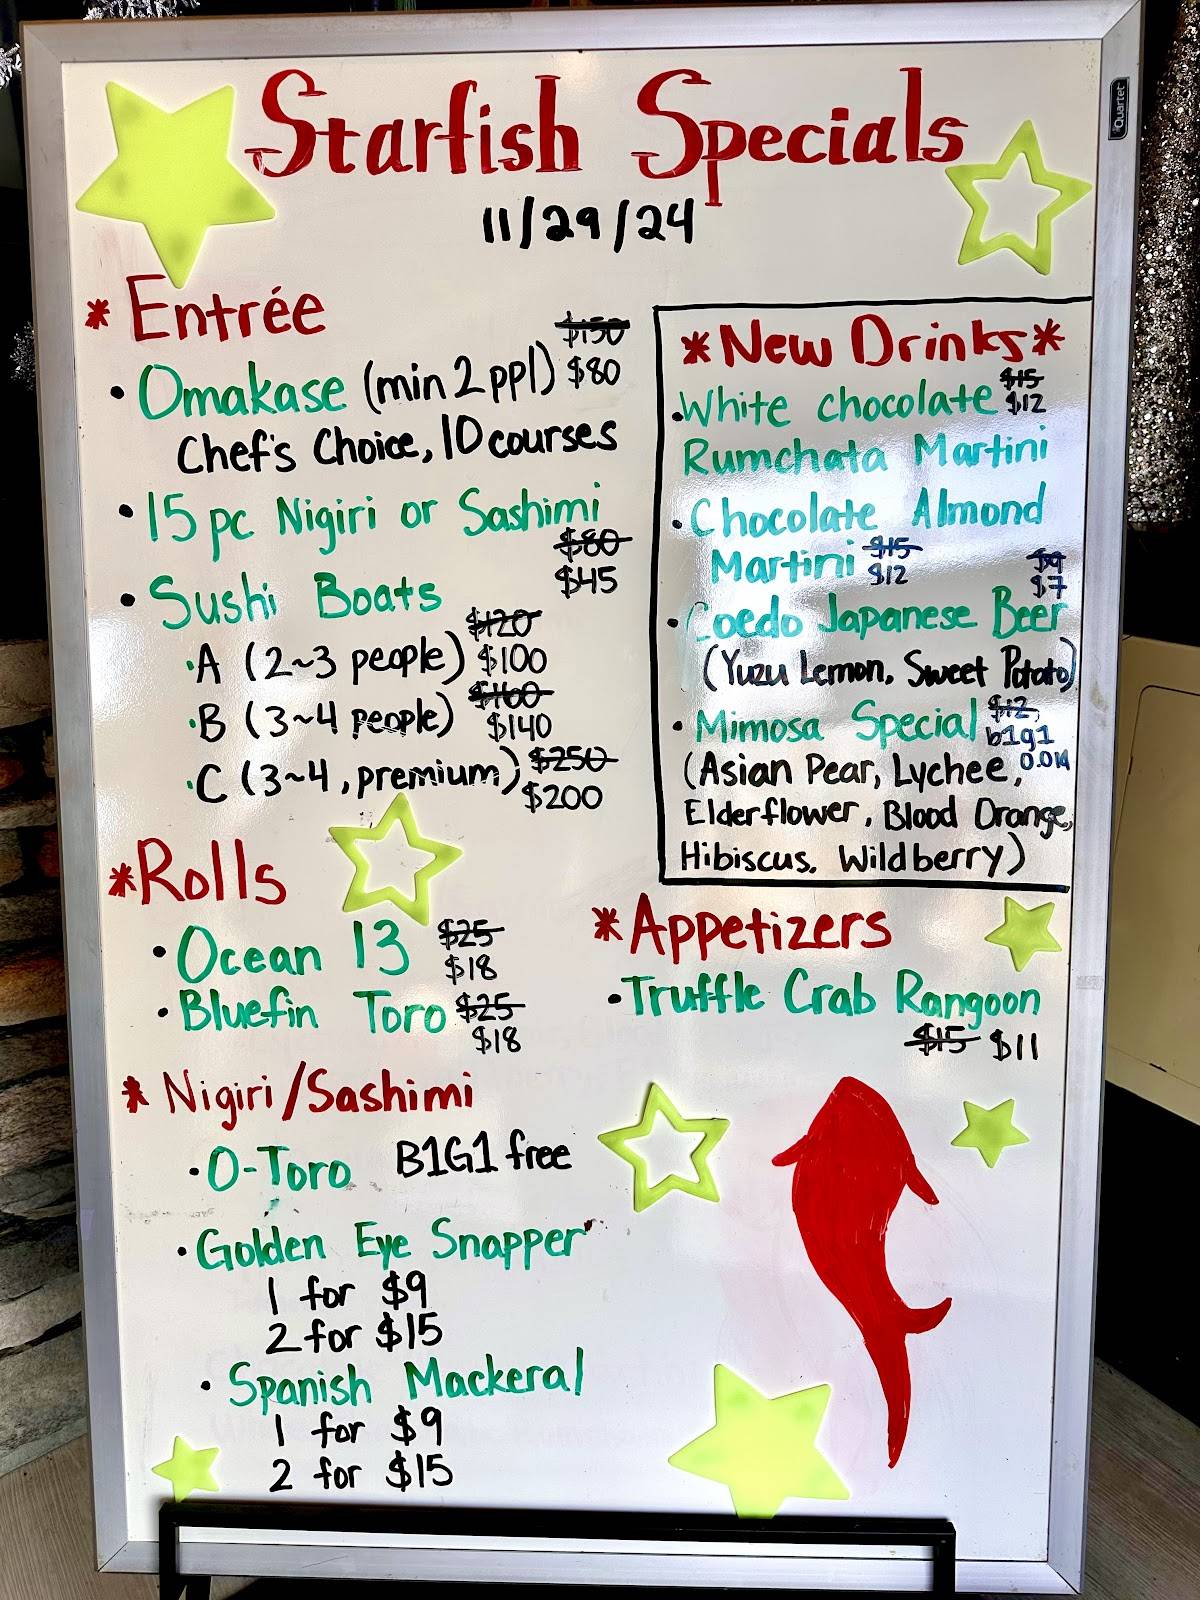 Quartet
Starfish Specials
11/29/24
* Entrée
$150
• Omakase (min 2 ppl) $80
Chef's Choice, 10 courses
• 15 pc Nigiri or Sashimi
$80
$45
• Sushi Boats
$120
• A (2~3 people) $100
$160
• B (3~4 people) $140
• C (3~4, premium) $250
$200
* Rolls
• Ocean 13 $25
$18
• Bluefin Toro $25
$18
* Nigiri/Sashimi
• O-Toro B1G1 free
• Golden Eye Snapper
1 for $9
2 for $15
• Spanish Mackeral
1 for $9
2 for $15
* New Drinks *
• White chocolate $15
$12
Rumchata Martini
• Chocolate Almond
Martini $15
$12
$9
$7
• Coedo Japanese Beer
(Yuzu Lemon, Sweet Potato)
• Mimosa Special $12,
b1g1
(Asian Pear, Lychee,
Elderflower, Blood Orange,
Hibiscus. Wildberry)
* Appetizers
• Truffle Crab Rangoon
$15 $11